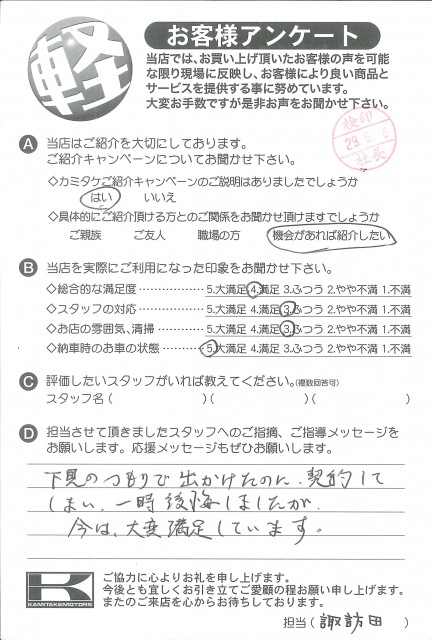 軽
お客様アンケート
当店では、お買い上げ頂いたお客様の声を可能
な限り現場に反映し、お客様により良い商品と
サービスを提供する事に努めています。
大変お手数ですが是非お声をお聞かせ下さい。
検印
29.6.6
社長
A 当店はご紹介を大切にしております。
ご紹介キャンペーンについてお聞かせ下さい。
◇カミタケご紹介キャンペーンのご説明はありましたでしょうか
はい いいえ
◇具体的にご紹介頂ける方とのご関係をお聞かせ頂けますでしょうか
ご親族 ご友人 職場の方 機会があれば紹介したい
B 当店を実際にご利用になった印象をお聞かせ下さい。
◇総合的な満足度 5.大満足 4.満足 3.ふつう 2.やや不満 1.不満
◇スタッフの対応 5.大満足 4.満足 3.ふつう 2.やや不満 1.不満
◇お店の雰囲気、清掃 5.大満足 4.満足 3.ふつう 2.やや不満 1.不満
◇納車時のお車の状態 5.大満足 4.満足 3.ふつう 2.やや不満 1.不満
C 評価したいスタッフがいれば教えてください。(複数回答可)
スタッフ名( )( )( )
D 担当させて頂きましたスタッフへのご指摘、ご指導メッセージを
お願いします。応援メッセージもぜひお願いします。
下見のつもりで出かけたのに、契約して
しまい、一時後悔しましたが
今は、大変満足しています。
K KAMITAKE MOTORS
ご協力に心よりお礼を申し上げます。
今後とも宜しくお引き立てご愛顧の程お願い申し上げます。
またのご来店を心からお待ちしております。
担当( 諏訪田 )